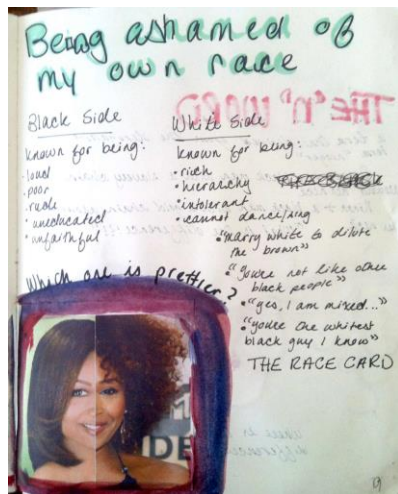 Being ashamed of
my own race
THE "N" WORD
Black Side
known for being:
· loud
· poor
· rude
· uneducated
· unfaithful
White Side
known for being:
· rich
· hierarchy
· intolerant
· cannot dance/sing
· "marry white to dilute
the brown"
· "you're not like other
black people"
· "yes, I am mixed..."
· "you're the whitest
black guy I know"
THE RACE CARD
Which one is prettier?
DE
19